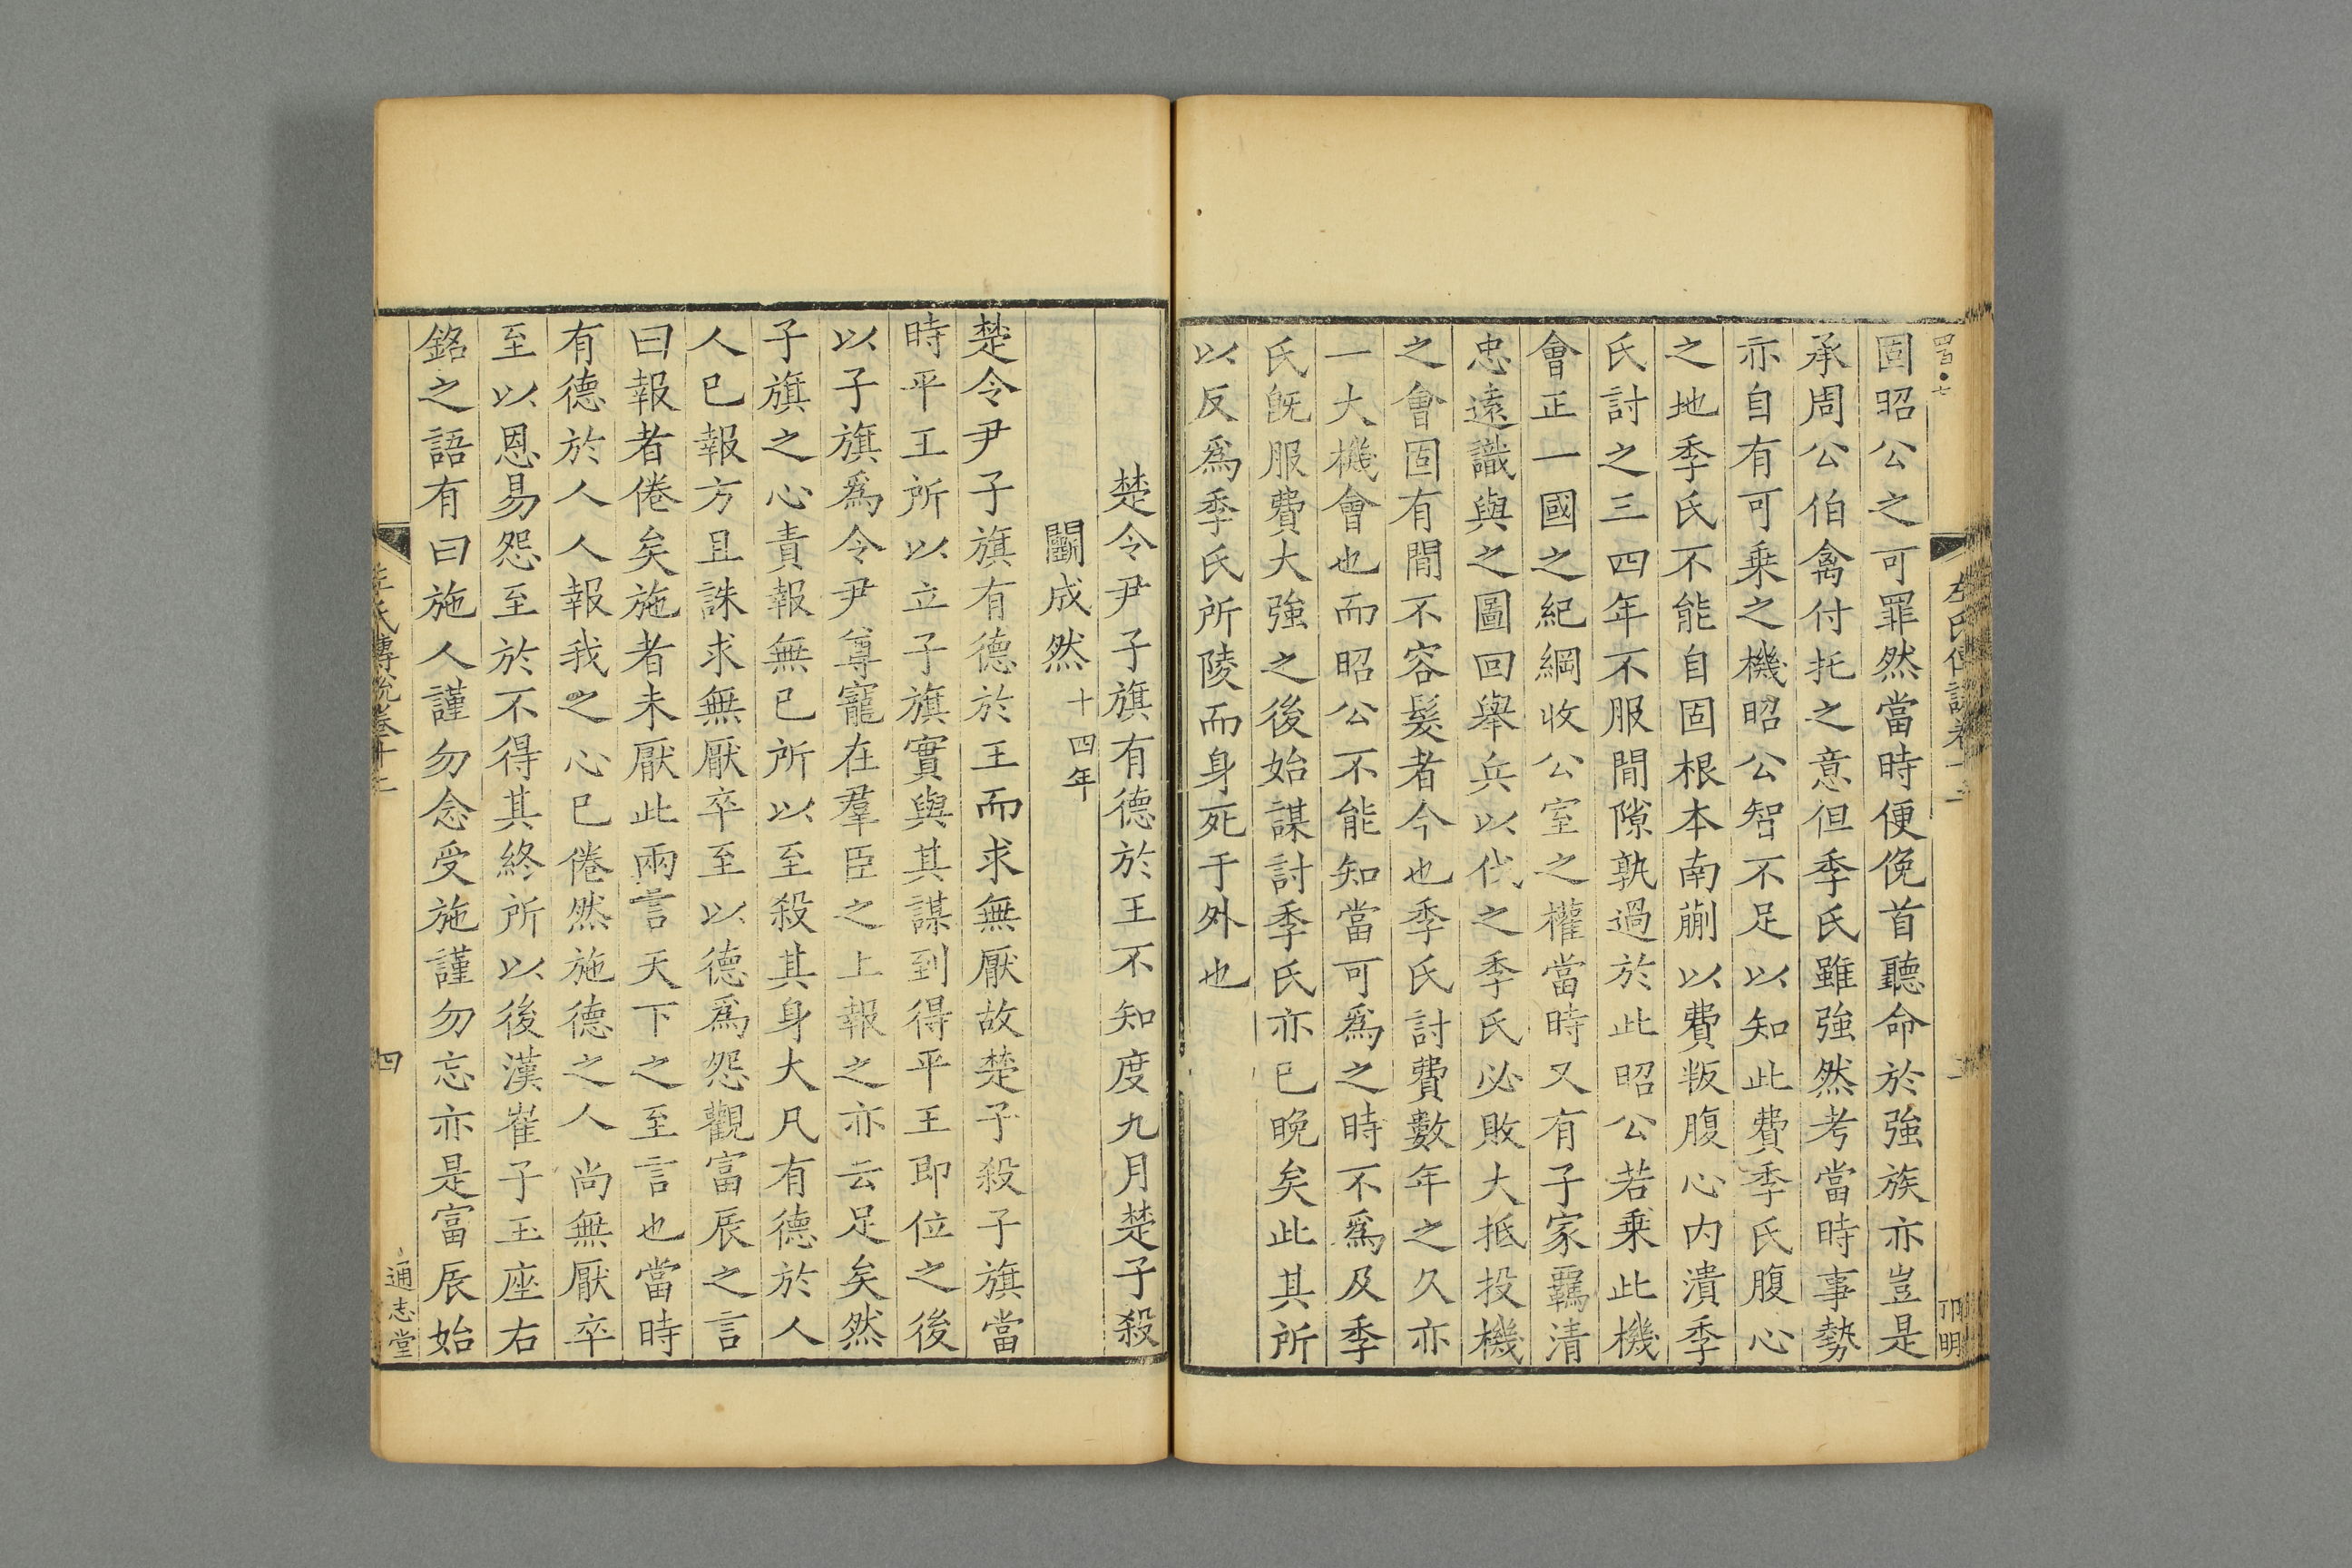 固昭公之可罪然當時便俛首聽命於強族亦豈是
承周公伯禽付托之意但季氏雖強然考當時事勢
亦自有可乗之機昭公智不足以知此費季氏腹心
之地季氏不能自固根本南蒯以費叛腹心内潰季
氏討之三四年不服間隙孰過於此昭公若乗此機
會正一國之紀綱收公室之權當時又有子家羈清
忠遠識與之圖回舉兵以伐之季氏必敗大抵投機
之會固有間不容髪者今也季氏討費數年之久亦
一大機會也而昭公不能知當可爲之時不爲及季
氏既服費大強之後始謀討季氏亦已晚矣此其所
以反爲季氏所陵而身死于外也
楚令尹子旗有德於王不知度九月楚子殺
鬬成然十四年
楚令尹子旗有德於王而求無厭故楚子殺子旗當
時平王所以立子旗實與其謀到得平王即位之後
以子旗爲令尹尊寵在羣臣之上報之亦云足矣然
子旗之心責報無已所以至殺其身大凡有德於人
人已報方且誅求無厭卒至以德爲怨觀富辰之言
曰報者倦矣施者未厭此兩言天下之至言也當時
有德於人人報我之心已倦然施德之人尚無厭卒
至以恩易怨至於不得其終所以後漢崔子玉座右
銘之語有曰施人謹勿念受施謹勿忘亦是富辰始
左氏傳說卷十二
四
通志堂